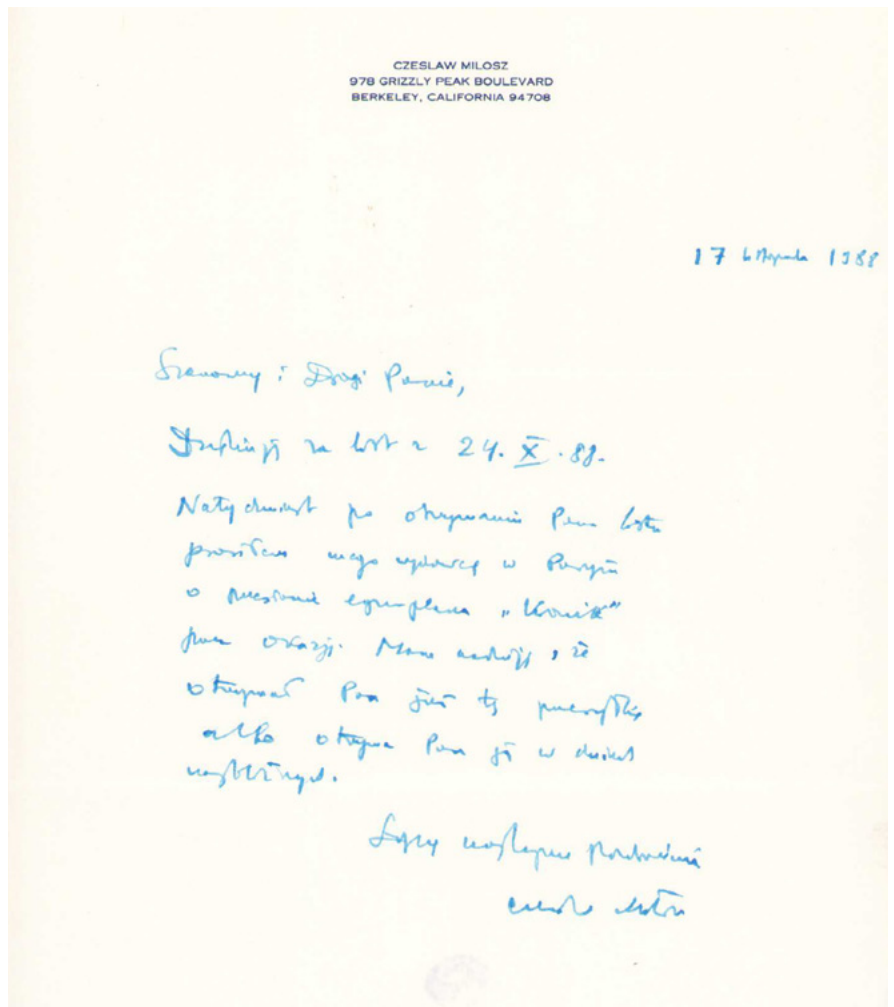 CZESLAW MILOSZ
978 GRIZZLY PEAK BOULEVARD
BERKELEY, CALIFORNIA 94708
17 listopada 1988
Szanowny i Drogi Panie,
Dziękuję za list z 24.X.88.
Natychmiast po otrzymaniu Pana listu
prosiłem mego wydawcę w Paryżu
o przesłanie egzemplarza „Kronik”
przez okazję. Mam nadzieję, że
otrzymał Pan już tę przesyłkę
albo otrzyma Pan ją w dniach
najbliższych.
Łączę najlepsze pozdrowienia
Czesław Miłosz